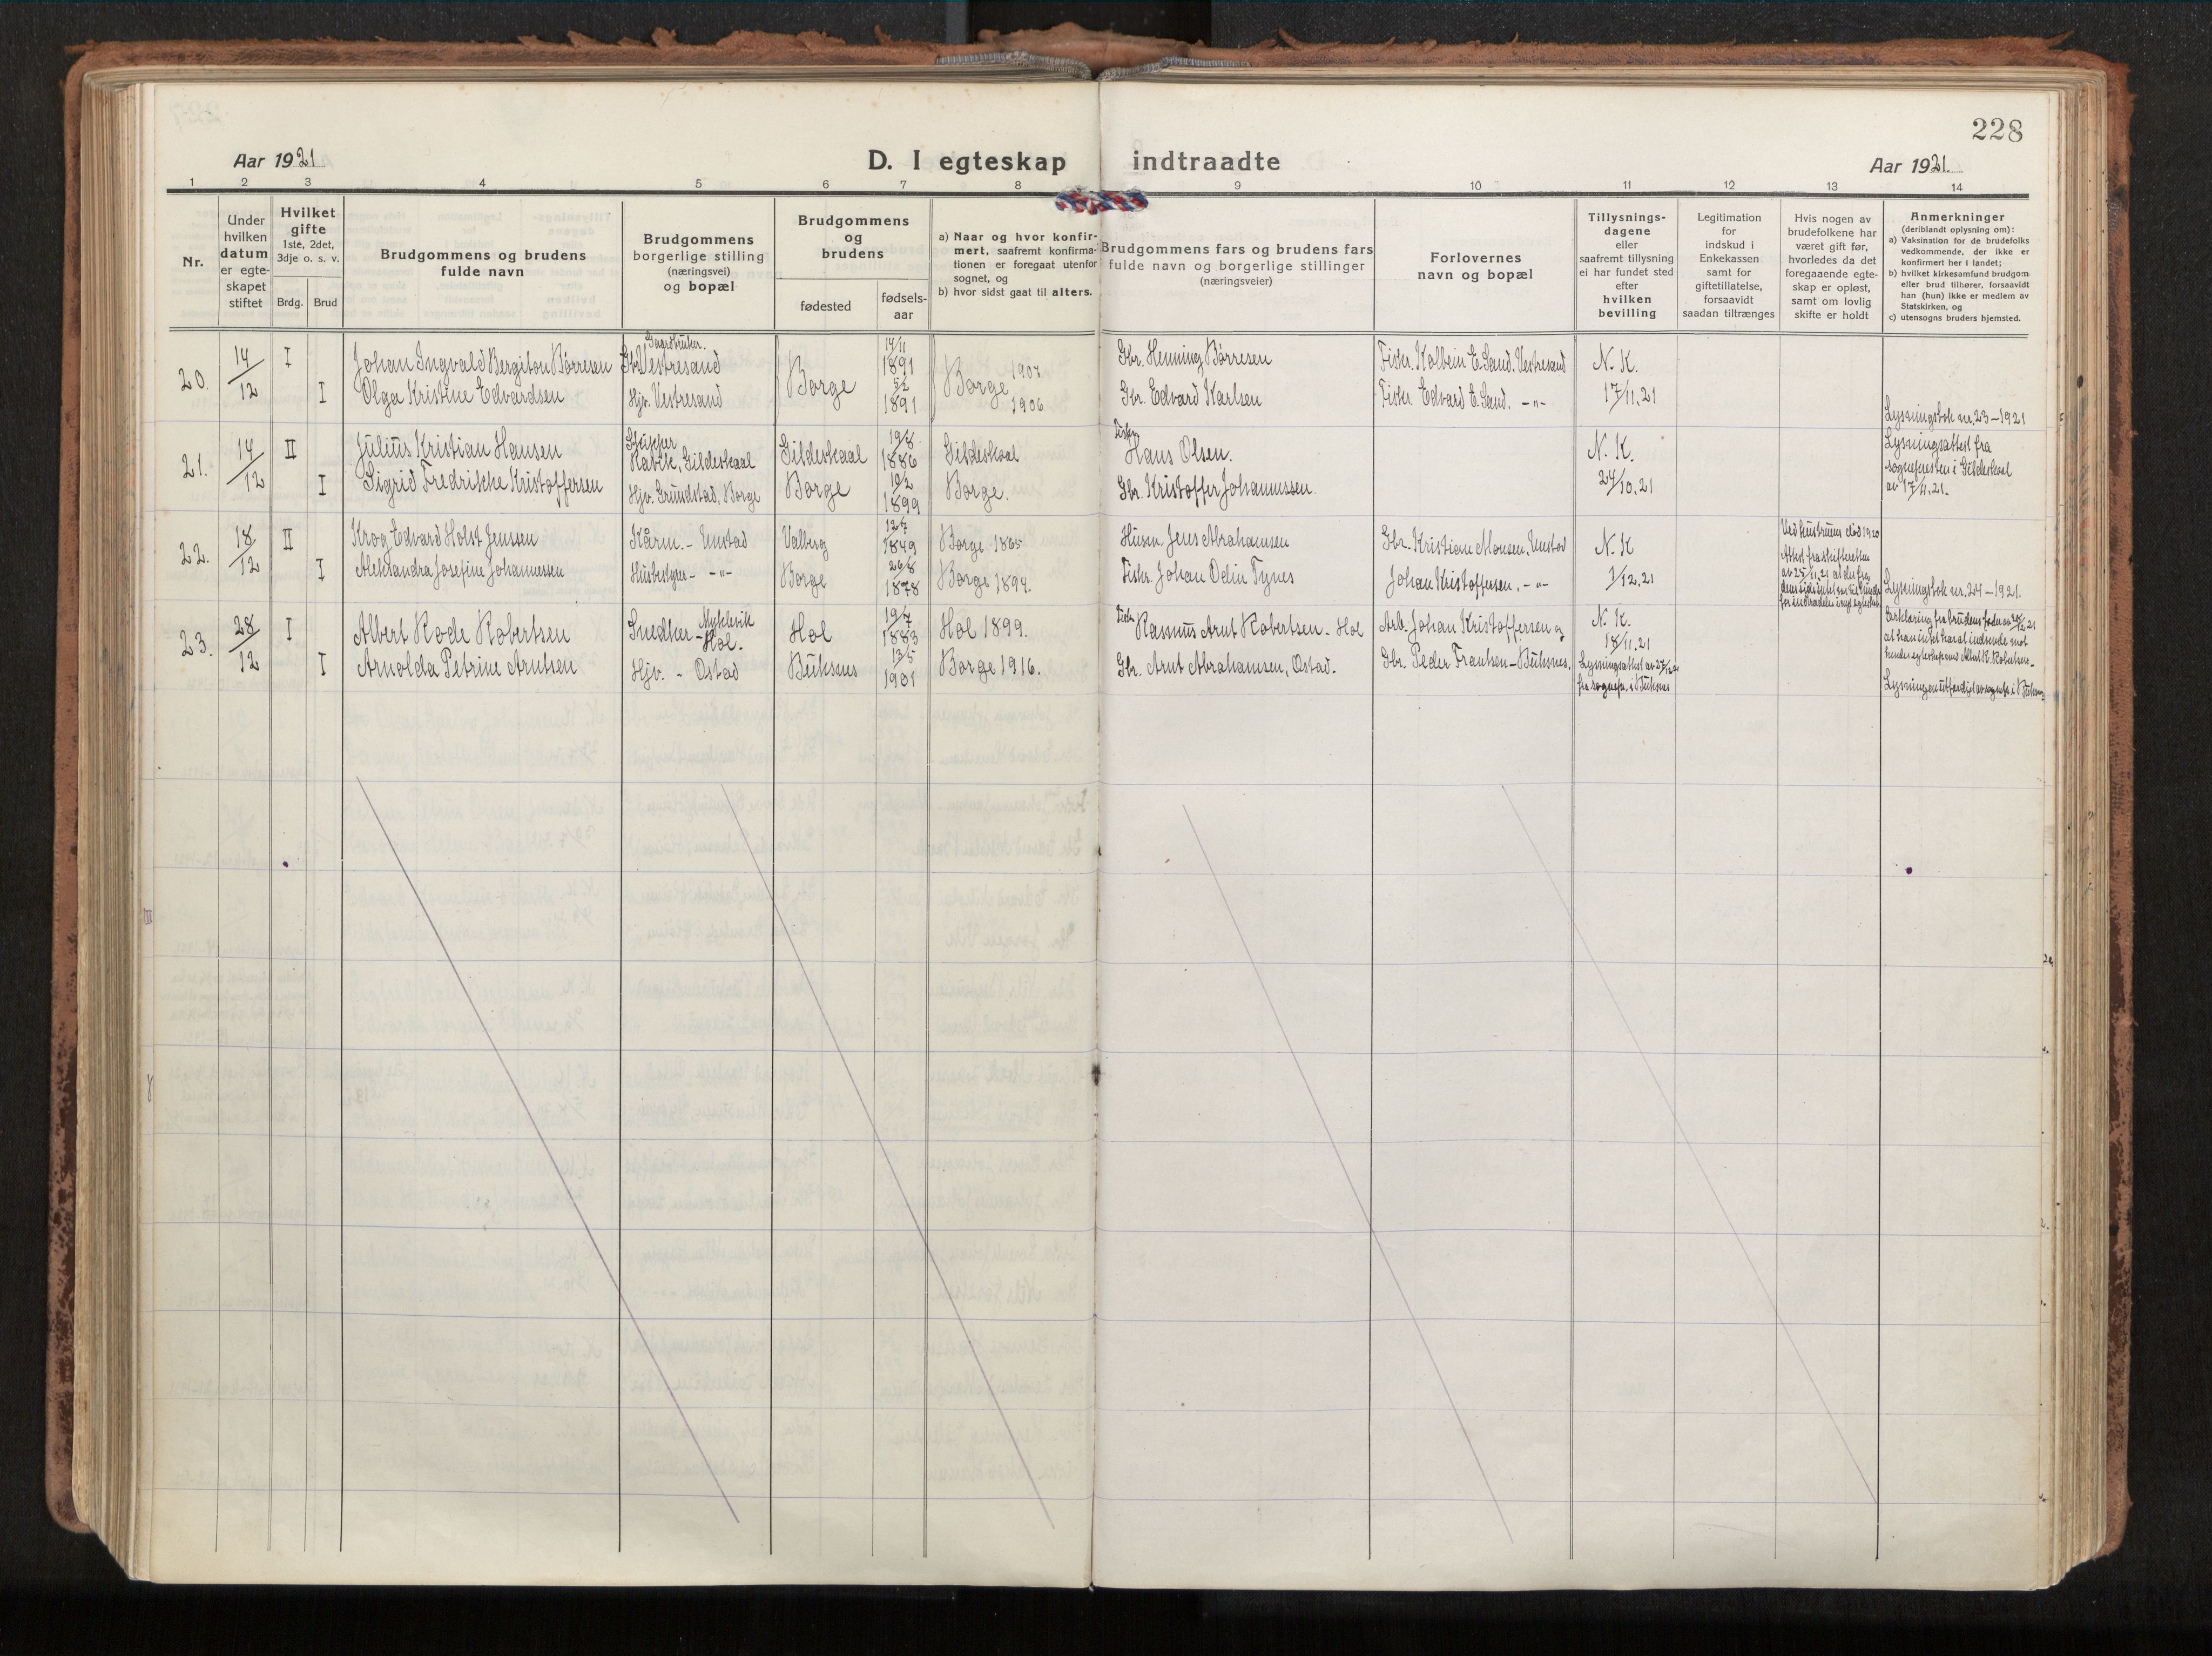 228
Aar 1921
D. I egteskap indtraadte
Aar 1921.
1 2 3 4 5 6 7 8 9 10 11 12 13 14
Nr.
Under hvilken datum er egte-skapet stiftet
Hvilket gifte
1ste, 2det, 3dje o. s. v.
Brdg. Brud
Brudgommens og brudens
fulde navn
Brudgommens
borgerlige stilling
(næringsvei)
og bopæl
Brudgommens
og
brudens
fødested
fødsels-
aar
a) Naar og hvor konfir-
mert, saafremt konfirma-
tionen er foregaat utenfor
sognet, og
b) hvor sidst gaat til alters.
Brudgommens fars og brudens fars
fulde navn og borgerlige stillinger
(næringsveier)
Forlovernes
navn og bopæl
Tillysnings-
dagene
eller
saafremt tillysning
ei har fundet sted
efter
hvilken
bevilling
Legitimation
for
indskud i
Enkekassen
samt for
giftetillatelse,
forsaavidt
saadan tiltrænges
Hvis nogen av
brudefolkene har
været gift før,
hvorledes da det
foregaaende egte-
skap er opløst,
samt om lovlig
skifte er holdt
Anmerkninger
(deriblandt oplysning om):
a) Vaksination for de brudefolks
vedkommende, der ikke er
konfirmert her i landet;
b) hvilket kirkesamfund brudgom
eller brud tilhører, forsaavidt
han (hun) ikke er medlem av
Statskirken, og
c) utensogns bruders hjemsted.
20. 14/12 I Johan Ingvald Bergiton Børresen Gaardbruker. Vestresand Borge 14/11 1891 Borge 1907 Gbr. Henning Børresen Fisker. Kolbein E. Sand. Vestresand N. K.
I Olga Kristine Edvardsen Hjv. Vestresand 5/2 1891 1906 Gbr. Edvard Karlsen Fisker Edvard E. Sand. -"- 17/11.21
Lysningsbok nr. 23-1921
21. 14/12 II Julius Kristian Hansen Skipper Gildeskaal Gildeskaal 19/8 1886 Gildeskaal Fisker Hans Olsen. N. K.
Lysningsattest fra
sognepresten i Gildeskaal
av 17/11.21.
I Sigrid Fredrikke Kristoffersen Hjv. Grundstad, Borge Borge 10/2 1899 Borge. Gbr. Kristoffer Johannessen 24/10.21
22. 18/12 II Krog Edvard Holst Jensen Kårm. - Unstad Valberg 12/7 1849 Borge 1865 Husm. Jens Abrahamsen Gbr. Kristian Monsen, Unstad N. K
Ved hustruens død 1920
Attest fra skifteretten
av 25/11.21 at der fra
I Aleksandra Josefine Johannessen Husbestyr. - -"- Borge 26/8 1878 Borge 1894. Fisker. Johan Odin Tynes Johan Kristoffersen. -"- 1/12.21
Lysningsbok nr. 24-1921.
23. 28/12 I Albert Rode Robertsen Snedker Myklevik - Hol. Hol 19/7 1883 Hol 1899. Fisker Rasmus Arnt Robertsen - Hol Arb. Johan Kristoffersen og N. K. 18/11.21
Erklæring fra brudens
at han intet har at indvende mot
hendes egteskap med Albert R. Robertsen -
I Arnolda Petrine Arntsen Hjv. - Ostad Buksnes 13/5 1901 Borge 1916. Gbr. Arnt Abrahamsen, Ostad. Gbr. Peder Frantsen - Buksnes. Lysningsattest av 27/12.21
fra sognepr. i Buksnes